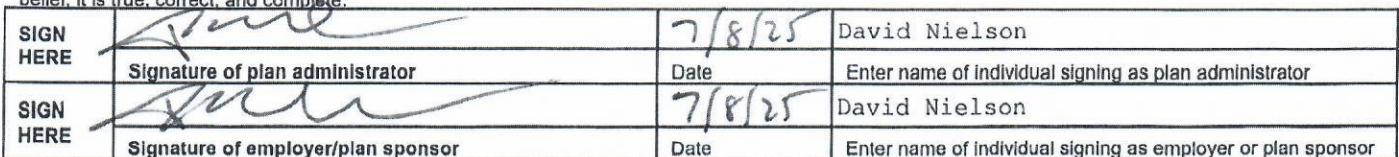 belief, it is true, correct, and complete.
SIGN HERE 7/8/25 David Nielson
Signature of plan administrator Date Enter name of individual signing as plan administrator
SIGN HERE 7/8/25 David Nielson
Signature of employer/plan sponsor Date Enter name of individual signing as employer or plan sponsor